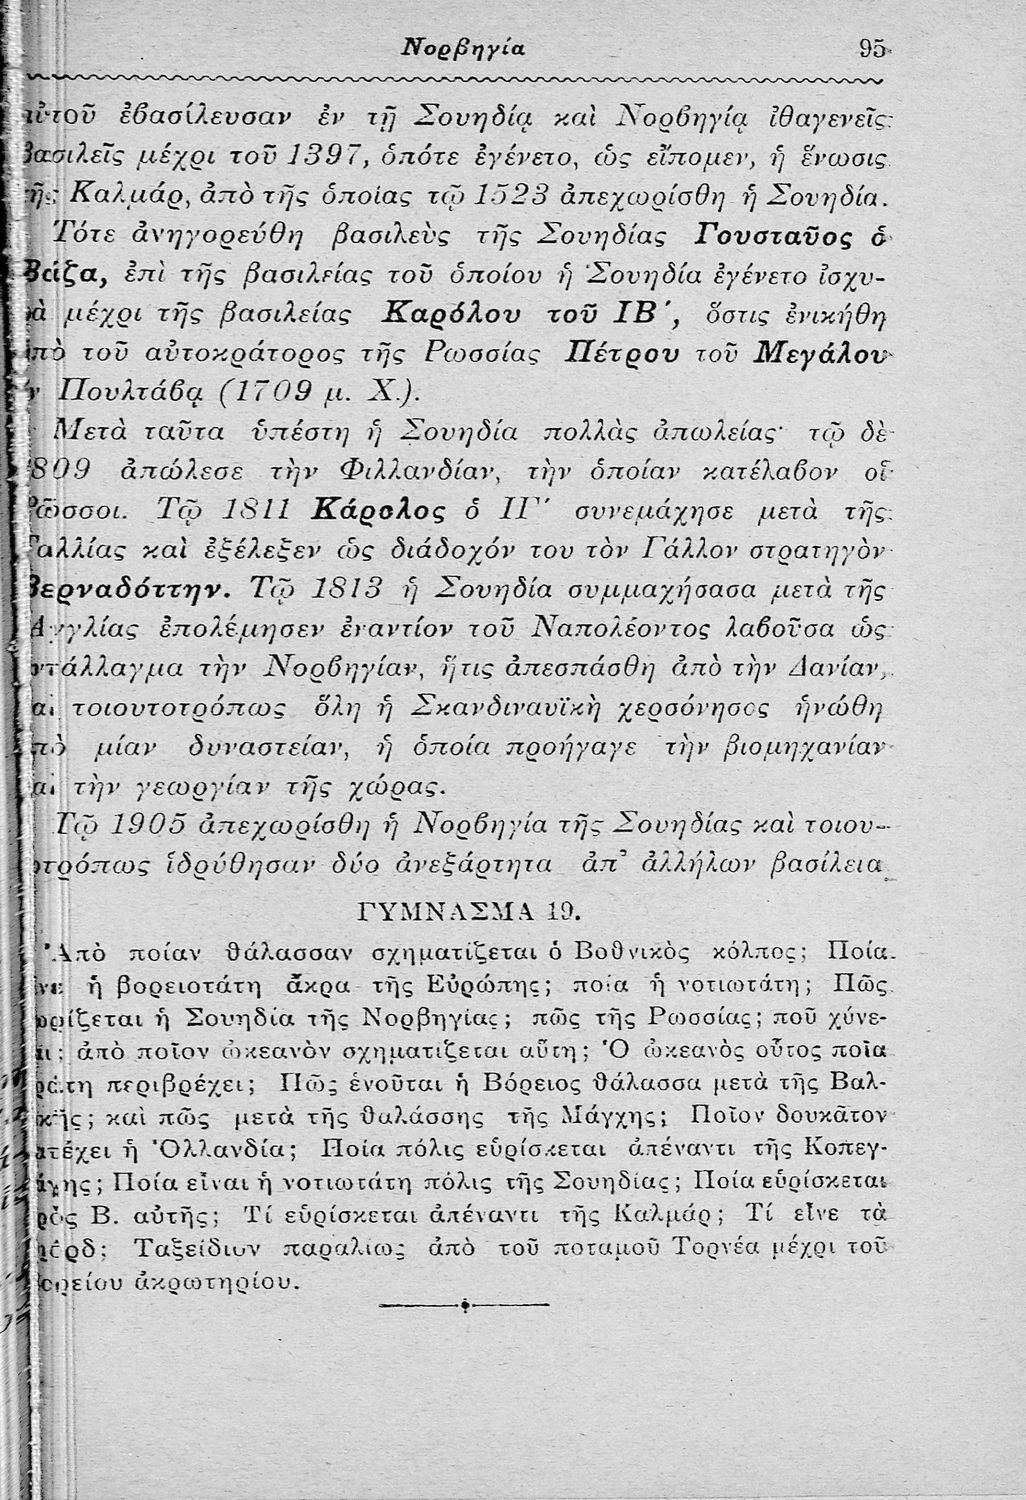 Νορβηγία 95
αὐτοῦ ἐβασίλευσαν ἐν τῇ Σουηδίᾳ καὶ Νορβηγίᾳ ἰθαγενεῖς
βασιλεῖς μέχρι τοῦ 1397, ὁπότε ἐγένετο, ὡς εἴπομεν, ἡ ἕνωσις
τῆς Καλμάρ, ἀπὸ τῆς ὁποίας τῷ 1523 ἀπεχωρίσθη ἡ Σουηδία.
Τότε ἀνηγορεύθη βασιλεὺς τῆς Σουηδίας Γουσταῦος ὁ
Βάζα, ἐπὶ τῆς βασιλείας τοῦ ὁποίου ἡ Σουηδία ἐγένετο ἰσχυ-
ρὰ μέχρι τῆς βασιλείας Καρόλου τοῦ ΙΒ΄, ὅστις ἐνικήθη
ὑπὸ τοῦ αὐτοκράτορος τῆς Ρωσσίας Πέτρου τοῦ Μεγάλου
ἐν Πουλτάβᾳ (1709 μ. Χ.).
Μετὰ ταῦτα ὑπέστη ἡ Σουηδία πολλὰς ἀπωλείας· τῷ δὲ
1809 ἀπώλεσε τὴν Φιλλανδίαν, τὴν ὁποίαν κατέλαβον οἱ
Ρῶσσοι. Τῷ 1811 Κάρολος ὁ ΙΓ΄ συνεμάχησε μετὰ τῆς
Γαλλίας καὶ ἐξέλεξεν ὡς διάδοχόν του τὸν Γάλλον στρατηγὸν
Βερναδόττην. Τῷ 1813 ἡ Σουηδία συμμαχήσασα μετὰ τῆς
Ἀγγλίας ἐπολέμησεν ἐναντίον τοῦ Ναπολέοντος λαβοῦσα ὡς
ἀντάλλαγμα τὴν Νορβηγίαν, ἥτις ἀπεσπάσθη ἀπὸ τὴν Δανίαν,
καὶ τοιουτοτρόπως ὅλη ἡ Σκανδιναυϊκὴ χερσόνησος ἡνώθη
ὑπὸ μίαν δυναστείαν, ἡ ὁποία προήγαγε τὴν βιομηχανίαν
καὶ τὴν γεωργίαν τῆς χώρας.
Τῷ 1905 ἀπεχωρίσθη ἡ Νορβηγία τῆς Σουηδίας καὶ τοιου-
τοτρόπως ἱδρύθησαν δύο ἀνεξάρτητα ἀπ᾽ ἀλλήλων βασίλεια
ΓΥΜΝΑΣΜΑ 19.
Ἀπὸ ποίαν θάλασσαν σχηματίζεται ὁ Βοθνικὸς κόλπος; Ποία
εἶνε ἡ βορειοτάτη ἄκρα τῆς Εὐρώπης; ποία ἡ νοτιωτάτη; Πῶς
χωρίζεται ἡ Σουηδία τῆς Νορβηγίας; πῶς τῆς Ρωσσίας; ποῦ χύνε-
ται; ἀπὸ ποῖον ὠκεανὸν σχηματίζεται αὕτη; Ὁ ὠκεανὸς οὗτος ποῖα
κράτη περιβρέχει; Πῶς ἑνοῦται ἡ Βόρειος θάλασσα μετὰ τῆς Βαλ-
τικῆς; καὶ πῶς μετὰ τῆς θαλάσσης τῆς Μάγχης; Ποῖον δουκᾶτον
κατέχει ἡ Ὁλλανδία; Ποία πόλις εὑρίσκεται ἀπέναντι τῆς Κοπεγ-
χάγης; Ποία εἶναι ἡ νοτιωτάτη πόλις τῆς Σουηδίας; Ποία εὑρίσκεται
πρὸς Β. αὐτῆς; Τί εὑρίσκεται ἀπέναντι τῆς Καλμάρ; Τί εἶνε τὰ
φιόρδ; Ταξείδιον παραλίως ἀπὸ τοῦ ποταμοῦ Τορνέα μέχρι τοῦ
Βορείου ἀκρωτηρίου.